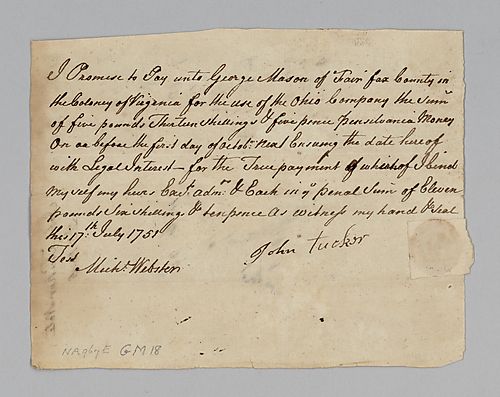 I Promise to Pay unto George Mason of Fair fax County in
the Coloney of Virginia for the use of the Ohio Company the Sum
of five pounds Thirteen shillings & five pence Pensilvanea Money
On or before the first day of Octobr. Next Ensuing the date here of
with Legal Interest - for the True payment of whereof I bind
My self my heirs Exers. admrs. & Each in ye penal Sum of Eleven
pounds Six shillings & ten pence As witness my hand & Seal
this 17th. July 1751
Test
John Tucker
Michl. Webster
GM 18